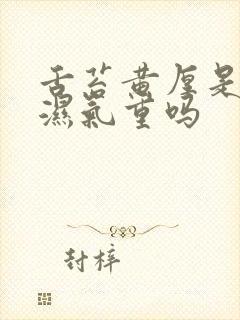 舌苔黄厚是
濕氣重吗
封梓